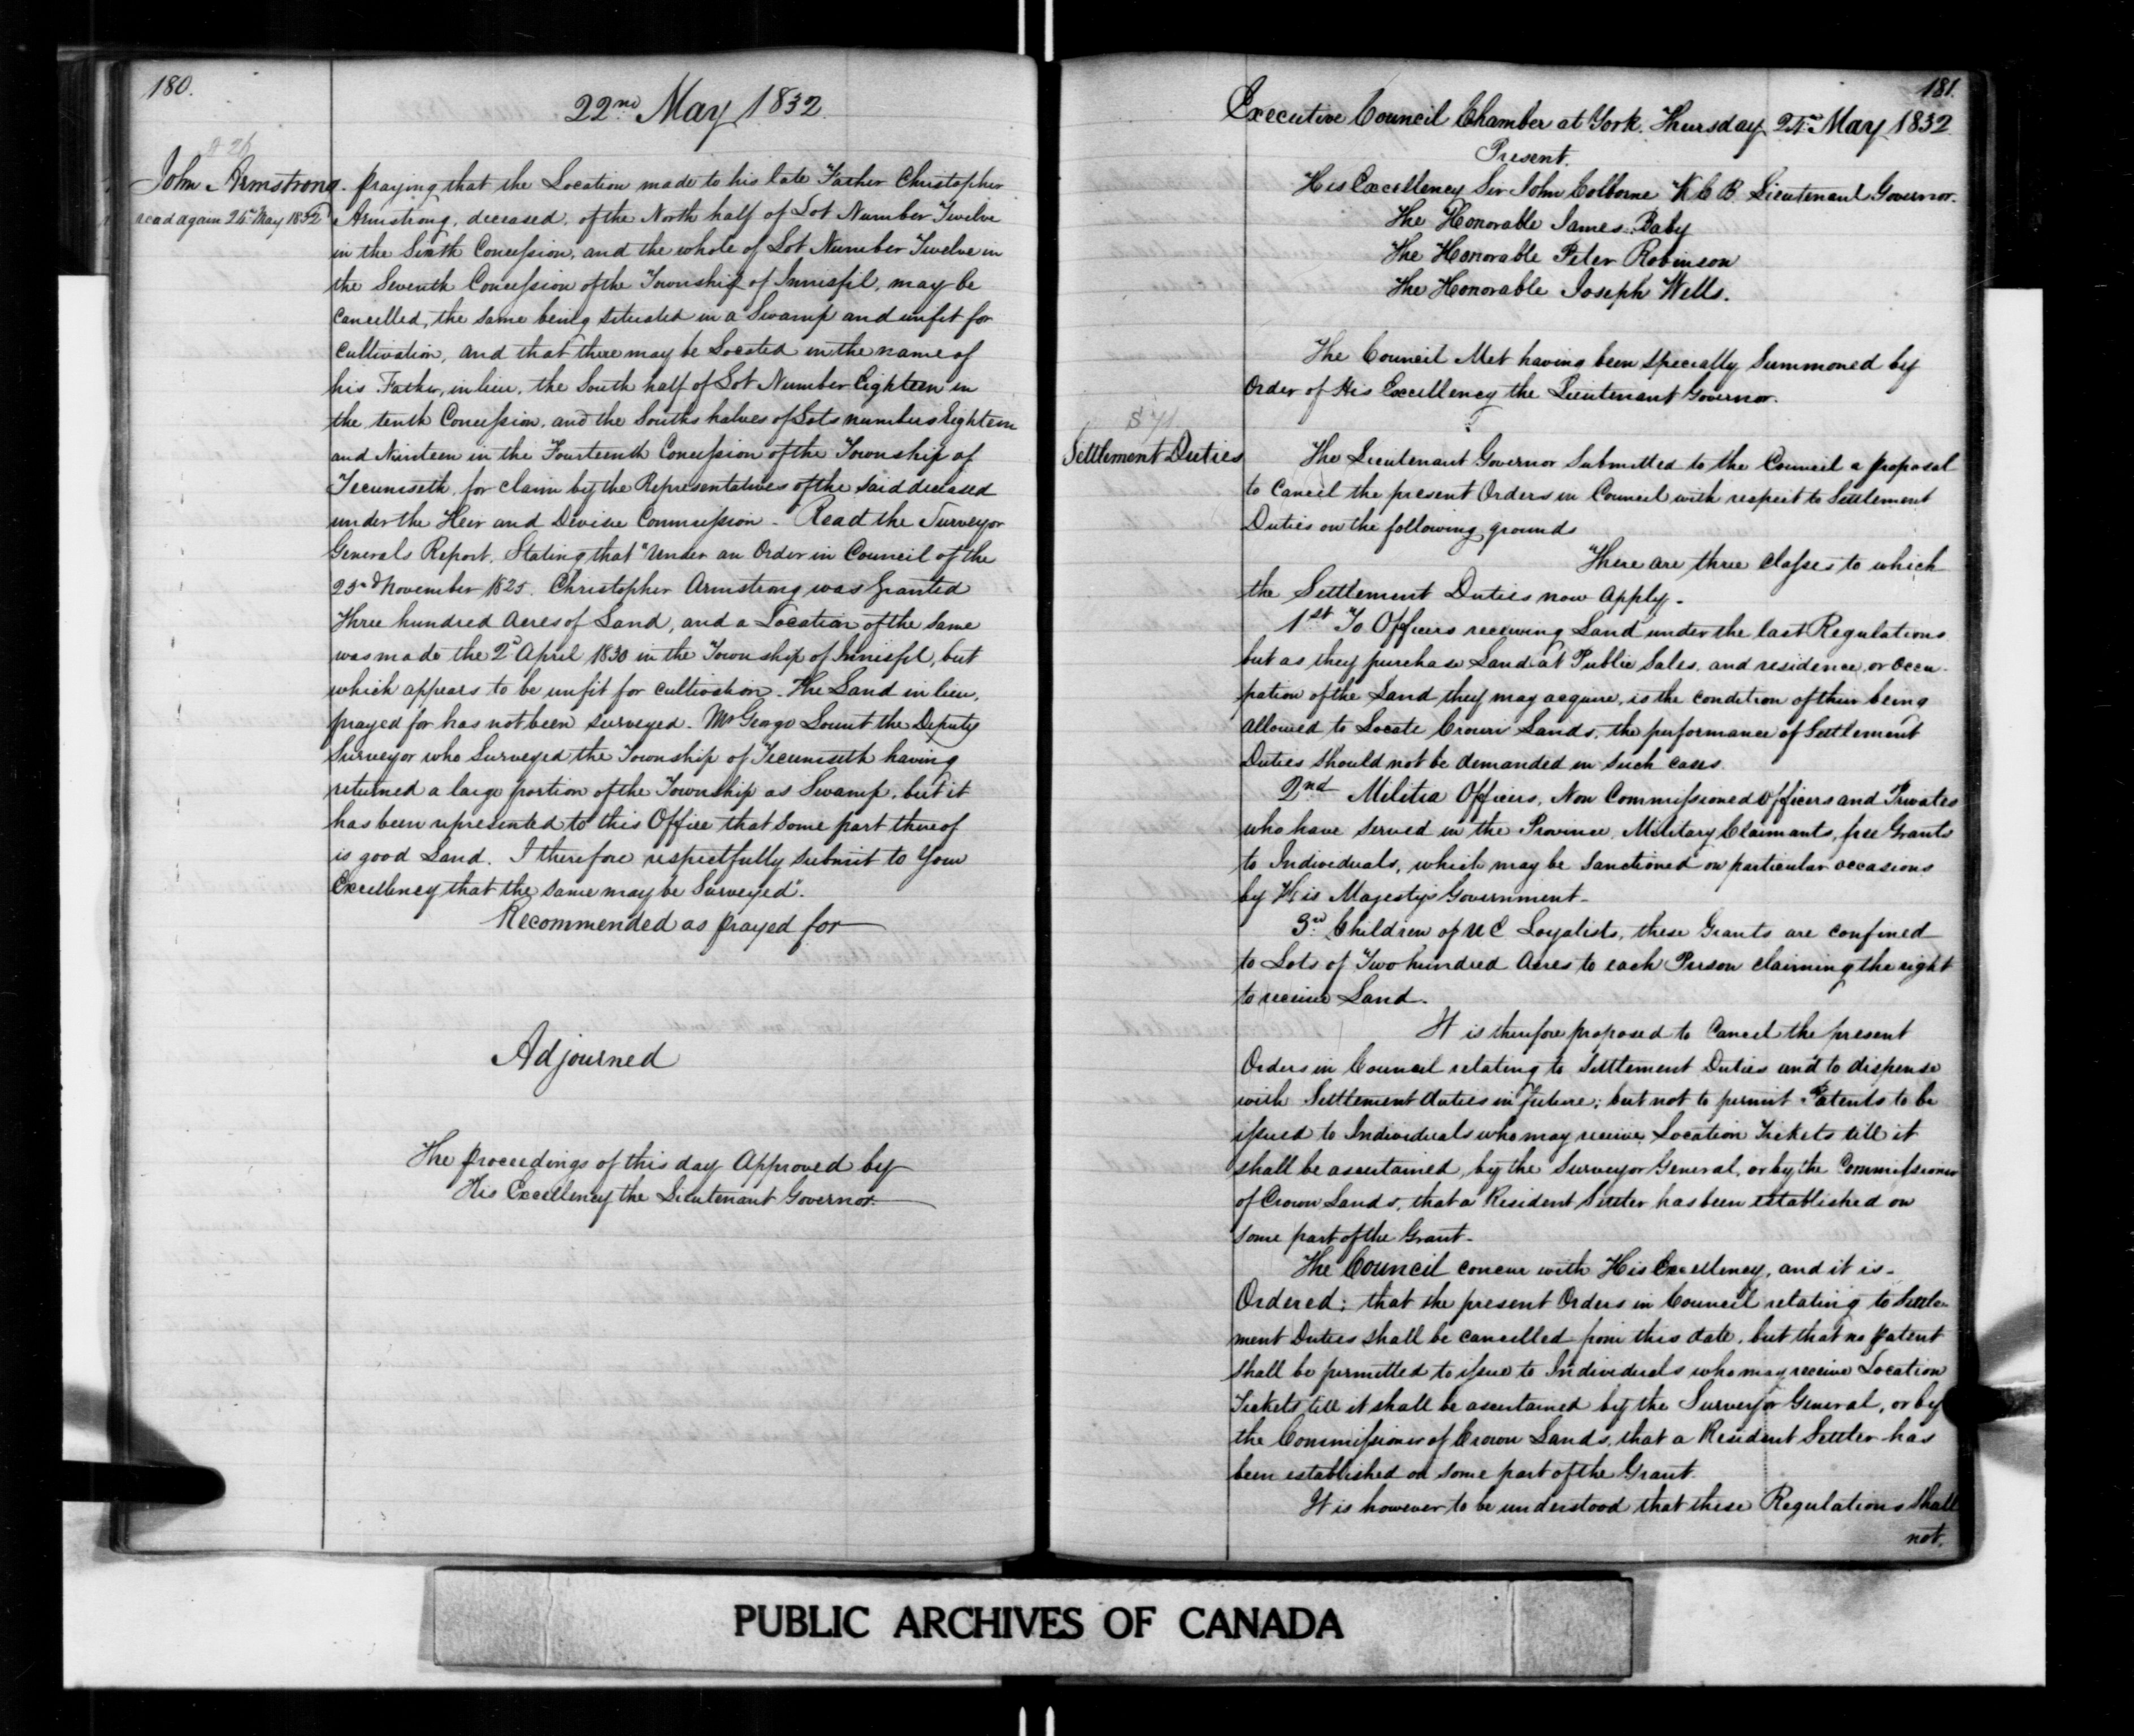 180.
22nd May 1832
A 26
John Armstrong. praying that the Location made to his late Father Christopher
read again 24th May 1832 Armstrong, deceased, of the North half of Lot Number Twelve
in the Sixth Concession, and the whole of Lot Number Twelve in
the Seventh Concession of the Township of Innisfil, may be
Cancelled, the same being situated in a Swamp and unfit for
Cultivation, and that there may be Located in the name of
his Father, in lieu, the South half of Lot Number Eighteen in
the tenth Concession, and the Souths halves of Lots numbers Eighteen
and Nineteen in the Fourteenth Concession of the Township of
Tecumseth, for claim by the Representatives of the said deceased
under the Heir and Devisee Commission - Read the Surveyor
Generals Report, Stating that "Under an Order in Council of the
November 1825. Christopher Armstrong was Granted
Three hundred Acres of Land, and a Location of the same
was made the 2d April 1830 in the Township of Innisfil, but
which appears to be unfit for cultivation. The Land in lieu,
prayed for has not been surveyed. Mr George Lount the Deputy
Surveyor who Surveyed the Township of Tecumseth having
returned a large portion of the Township as Swamp, but it
has been represented to this Office that some part thereof
is good Land. I therefore respectfully submit to Your
Excellency that the same may be Surveyed".
Recommended as prayed for
Adjourned
The proceedings of this day Approved by
His Excellency the Lieutenant Governor.
181.
Executive Council Chamber at York. Thursday May 1832
Present.
His Excellency Sir John Colborne K C B. Lieutenant Governor.
The Honorable James Baby
The Honorable Peter Robinson
The Honorable Joseph Wells.
The Council Met having been specially Summoned by
Order of His Excellency the Lieutenant Governor.
S 71
Settlement Duties The Lieutenant Governor Submitted to the Council a proposal
to Cancel the present Orders in Council with respect to Settlement
Duties on the following grounds
"There are three Classes to which
the Settlement Duties now Apply.
1st To Officers receiving Land under the last Regulations
but as they purchase Land at Public Sales, and residence, or occu-
pation of the Land they may acquire, is the condition of their being
allowed to Locate Crown Lands, the performance of Settlement
Duties should not be demanded in such cases.
2nd Militia Officers, Non Commissioned Officers and Privates
who have served in the Province, Military Claimants, free Grants
to Individuals, which may be sanctioned on particular occasions
by His Majestys Government.
3rd Children of U E Loyalists, these Grants are confined
to Lots of Two hundred Acres to each Person claiming the right
to receive Land.
It is therefore proposed to Cancel the present
Orders in Council relating to Settlement Duties and to dispense
with Settlement duties in future; but not to permit Patents to be
issued to Individuals who may receive Location Tickets till it
shall be ascertained, by the Surveyor General, or by the Commissioner
of Crown Lands, that a Resident Settler has been established on
some part of the Grant.
The Council concur with His Excellency, and it is.
Ordered; that the present Orders in Council relating to Settle-
ment Duties shall be cancelled from this date, but that no patent
shall be permitted to issue to Individuals who may receive Location
Tickets till it shall be ascertained by the Surveyor General, or by
the Commissioner of Crown Lands, that a Resident Settler has
been established on some part of the Grant.
It is however to be understood that these Regulations shall
not.
PUBLIC ARCHIVES OF CANADA